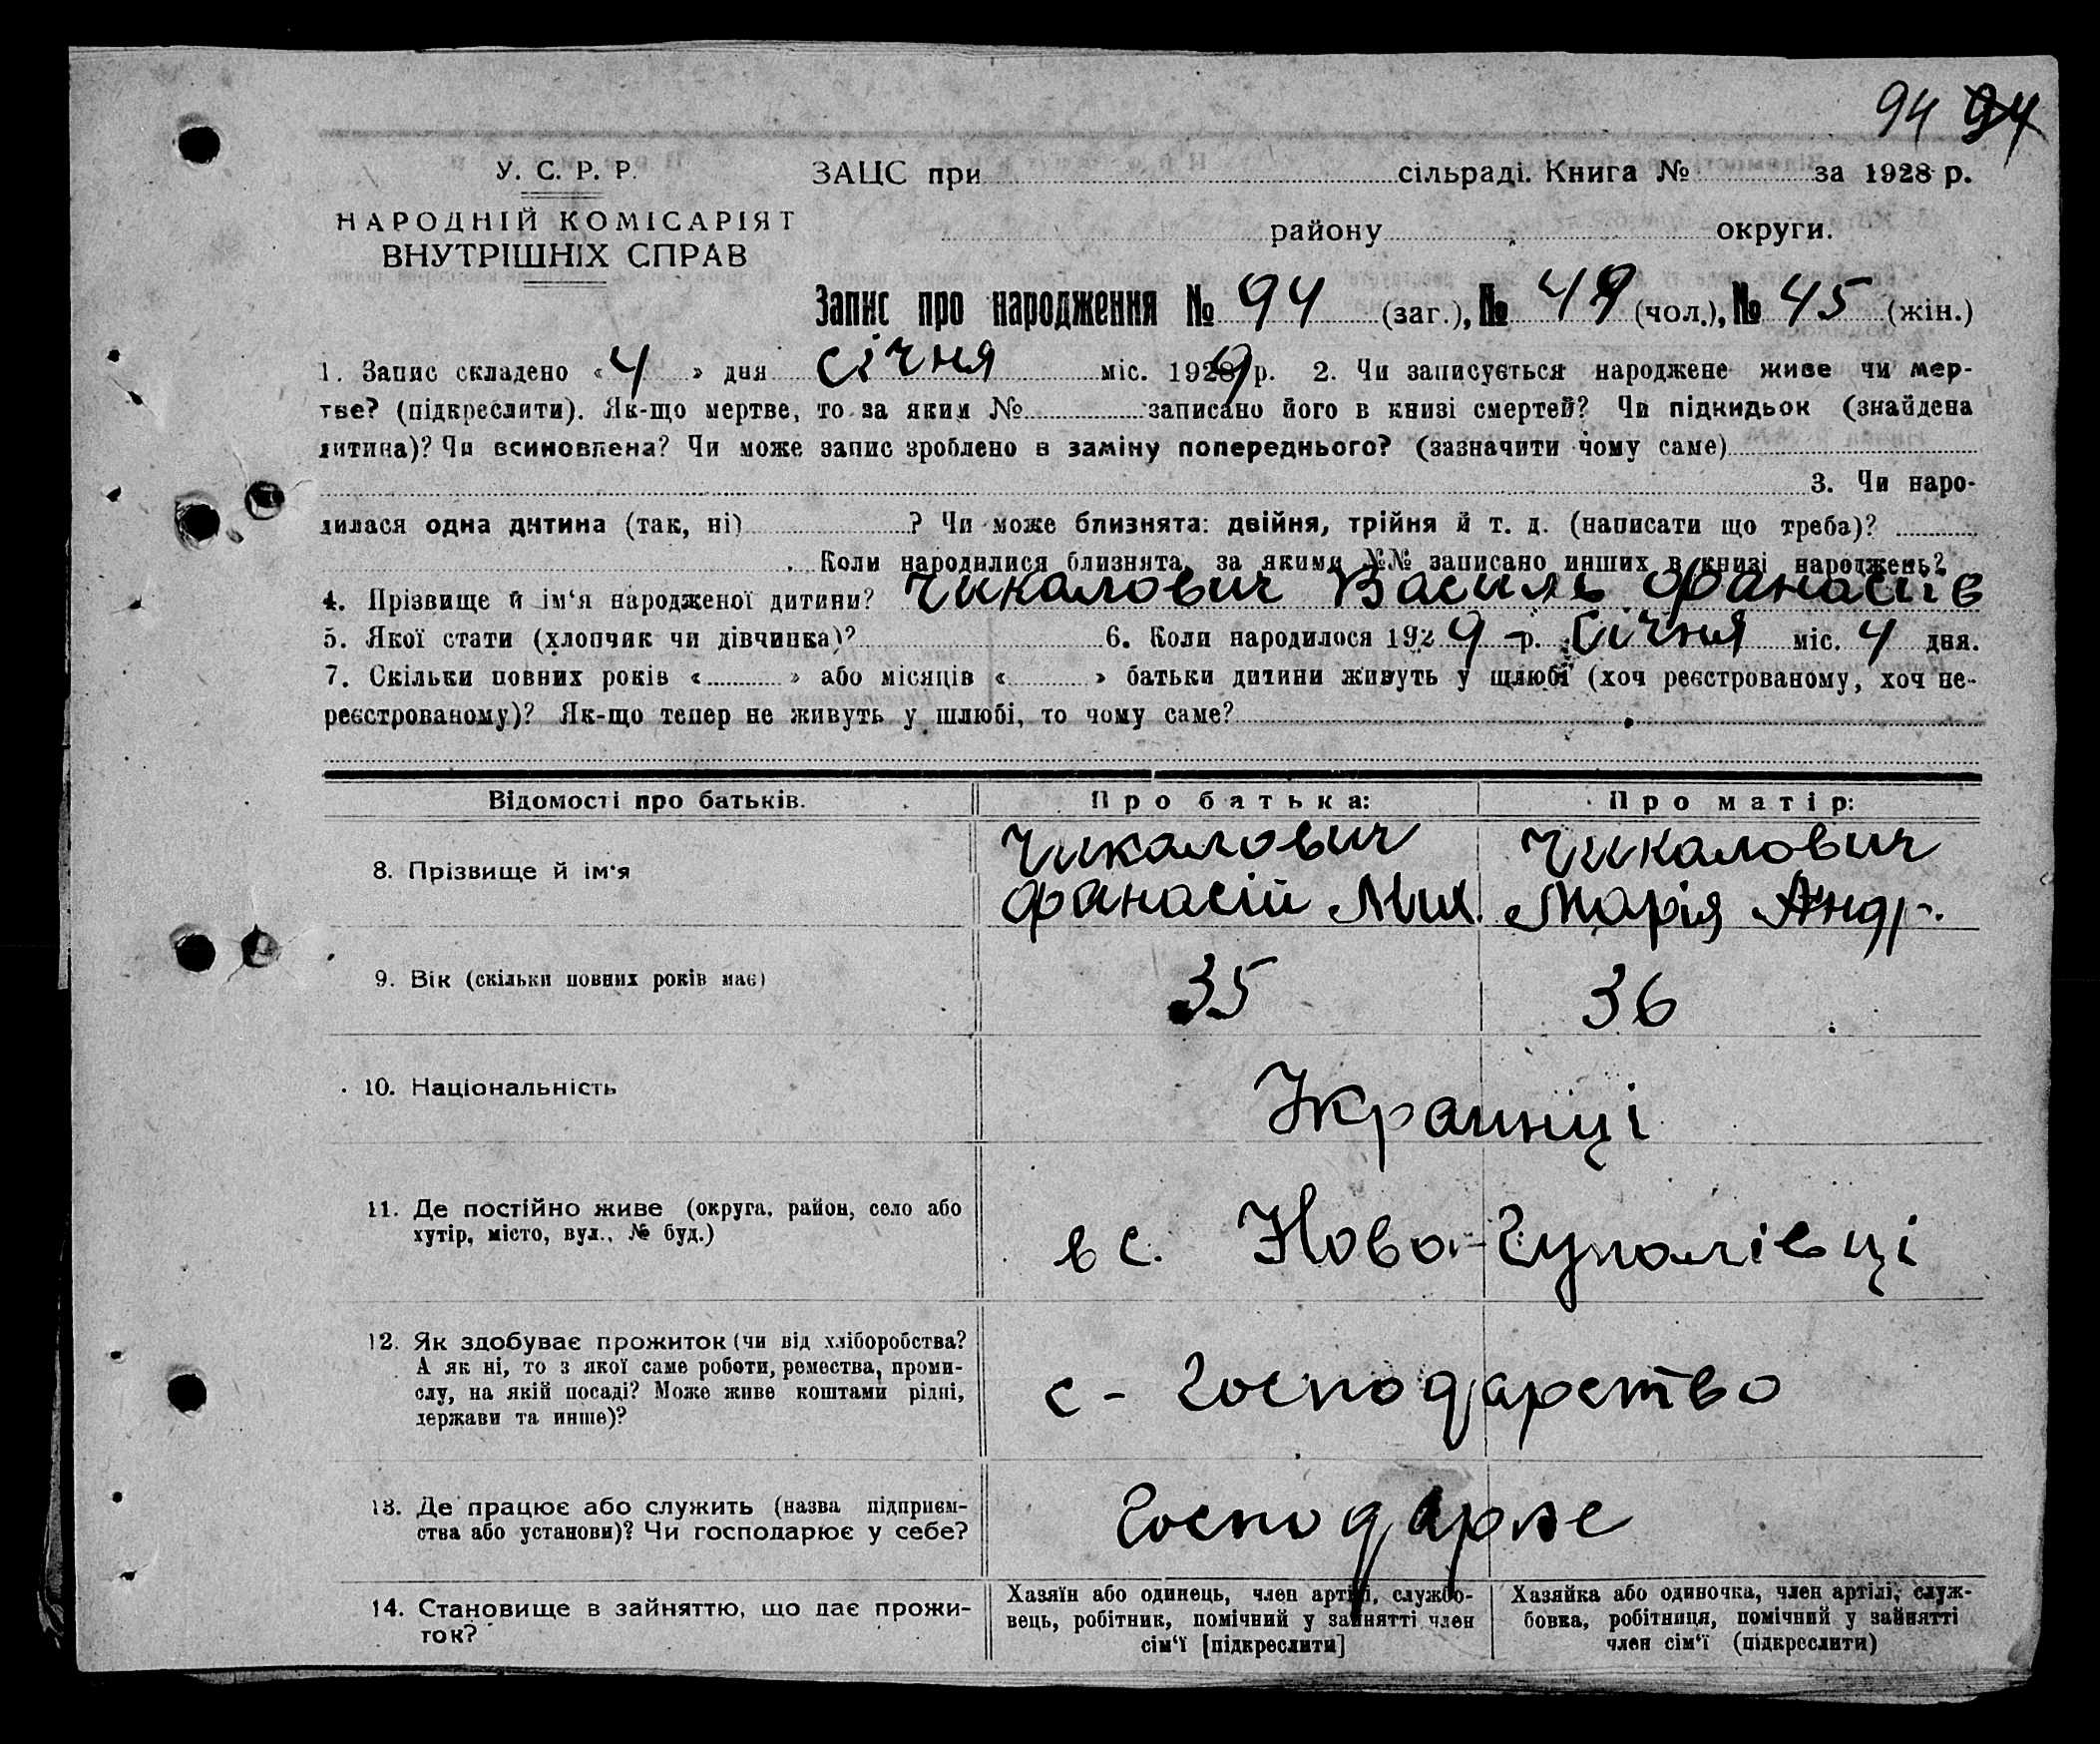 94 94
У. С. Р. Р.
НАРОДНІЙ КОМІСАРІЯТ
ВНУТРІШНІХ СПРАВ
ЗАЦС при сільраді. Книга № за 1928 р.
району округи.
Запис про народження № 94 (заг.), № 49 (чол.), № 45 (жін.)
1. Запис складено « 4 » дня січня міс. 1929 р. 2. Чи записується народжене живе чи мер-
тве? (підкреслити). Як-що мертве, то за яким № записано його в книзі смертей? Чи підкидьок (знайдена
дитина)? Чи всиновлена? Чи може запис зроблено в заміну попереднього? (зазначити чому саме)
3. Чи наро-
дилася одна дитина (так, ні) ? Чи може близнята: двійня, трійня й т. д. (написати що треба)?
Коли народилися близнята, за якими №№ записано инших в книзі народжень?
4. Прізвище й ім‘я народженої дитини? Чикалович Василь Фанасіїв
5. Якої стати (хлопчик чи дівчинка)? 6. Коли народилося 1929 р. Січня міс. 4 дня.
7. Скільки повних років « » або місяців « » батьки дитини живуть у шлюбі (хоч реєстрованому, хоч не-
реєстрованому)? Як-що тепер не живуть у шлюбі, то чому саме?
Відомості про батьків. Про батька: Про матір:
8. Прізвище й ім‘я
Чикалович Чикалович
Фанасій Мих. Марія Андр.
9. Вік (скільки повних років має) 35 36
10. Національність Украинці
11. Де постійно живе (округа, район, село або
хутір, місто, вул., № буд.)
в с. Ново-Гупалівці
12. Як здобуває прожиток (чи від хліборобства?
А як ні, то з якої саме роботи, ремества, проми-
слу, на якій посаді? Може живе коштами рідні,
держави та инше)?
с-господарство
13. Де працює або служить (назва підприєм-
ства або установи)? Чи господарює у себе?
14. Становище в зайняттю, що дає прожи-
ток?
Хазяїн або одинець, член артілі, службо-
вець, робітник, помічний у зайнятті член
сім‘ї [підкреслити]
Хазяйка або одиночка, член артілі, служ-
бовка, робітниця, помічний у зайнятті
член сім‘ї (підкреслити)